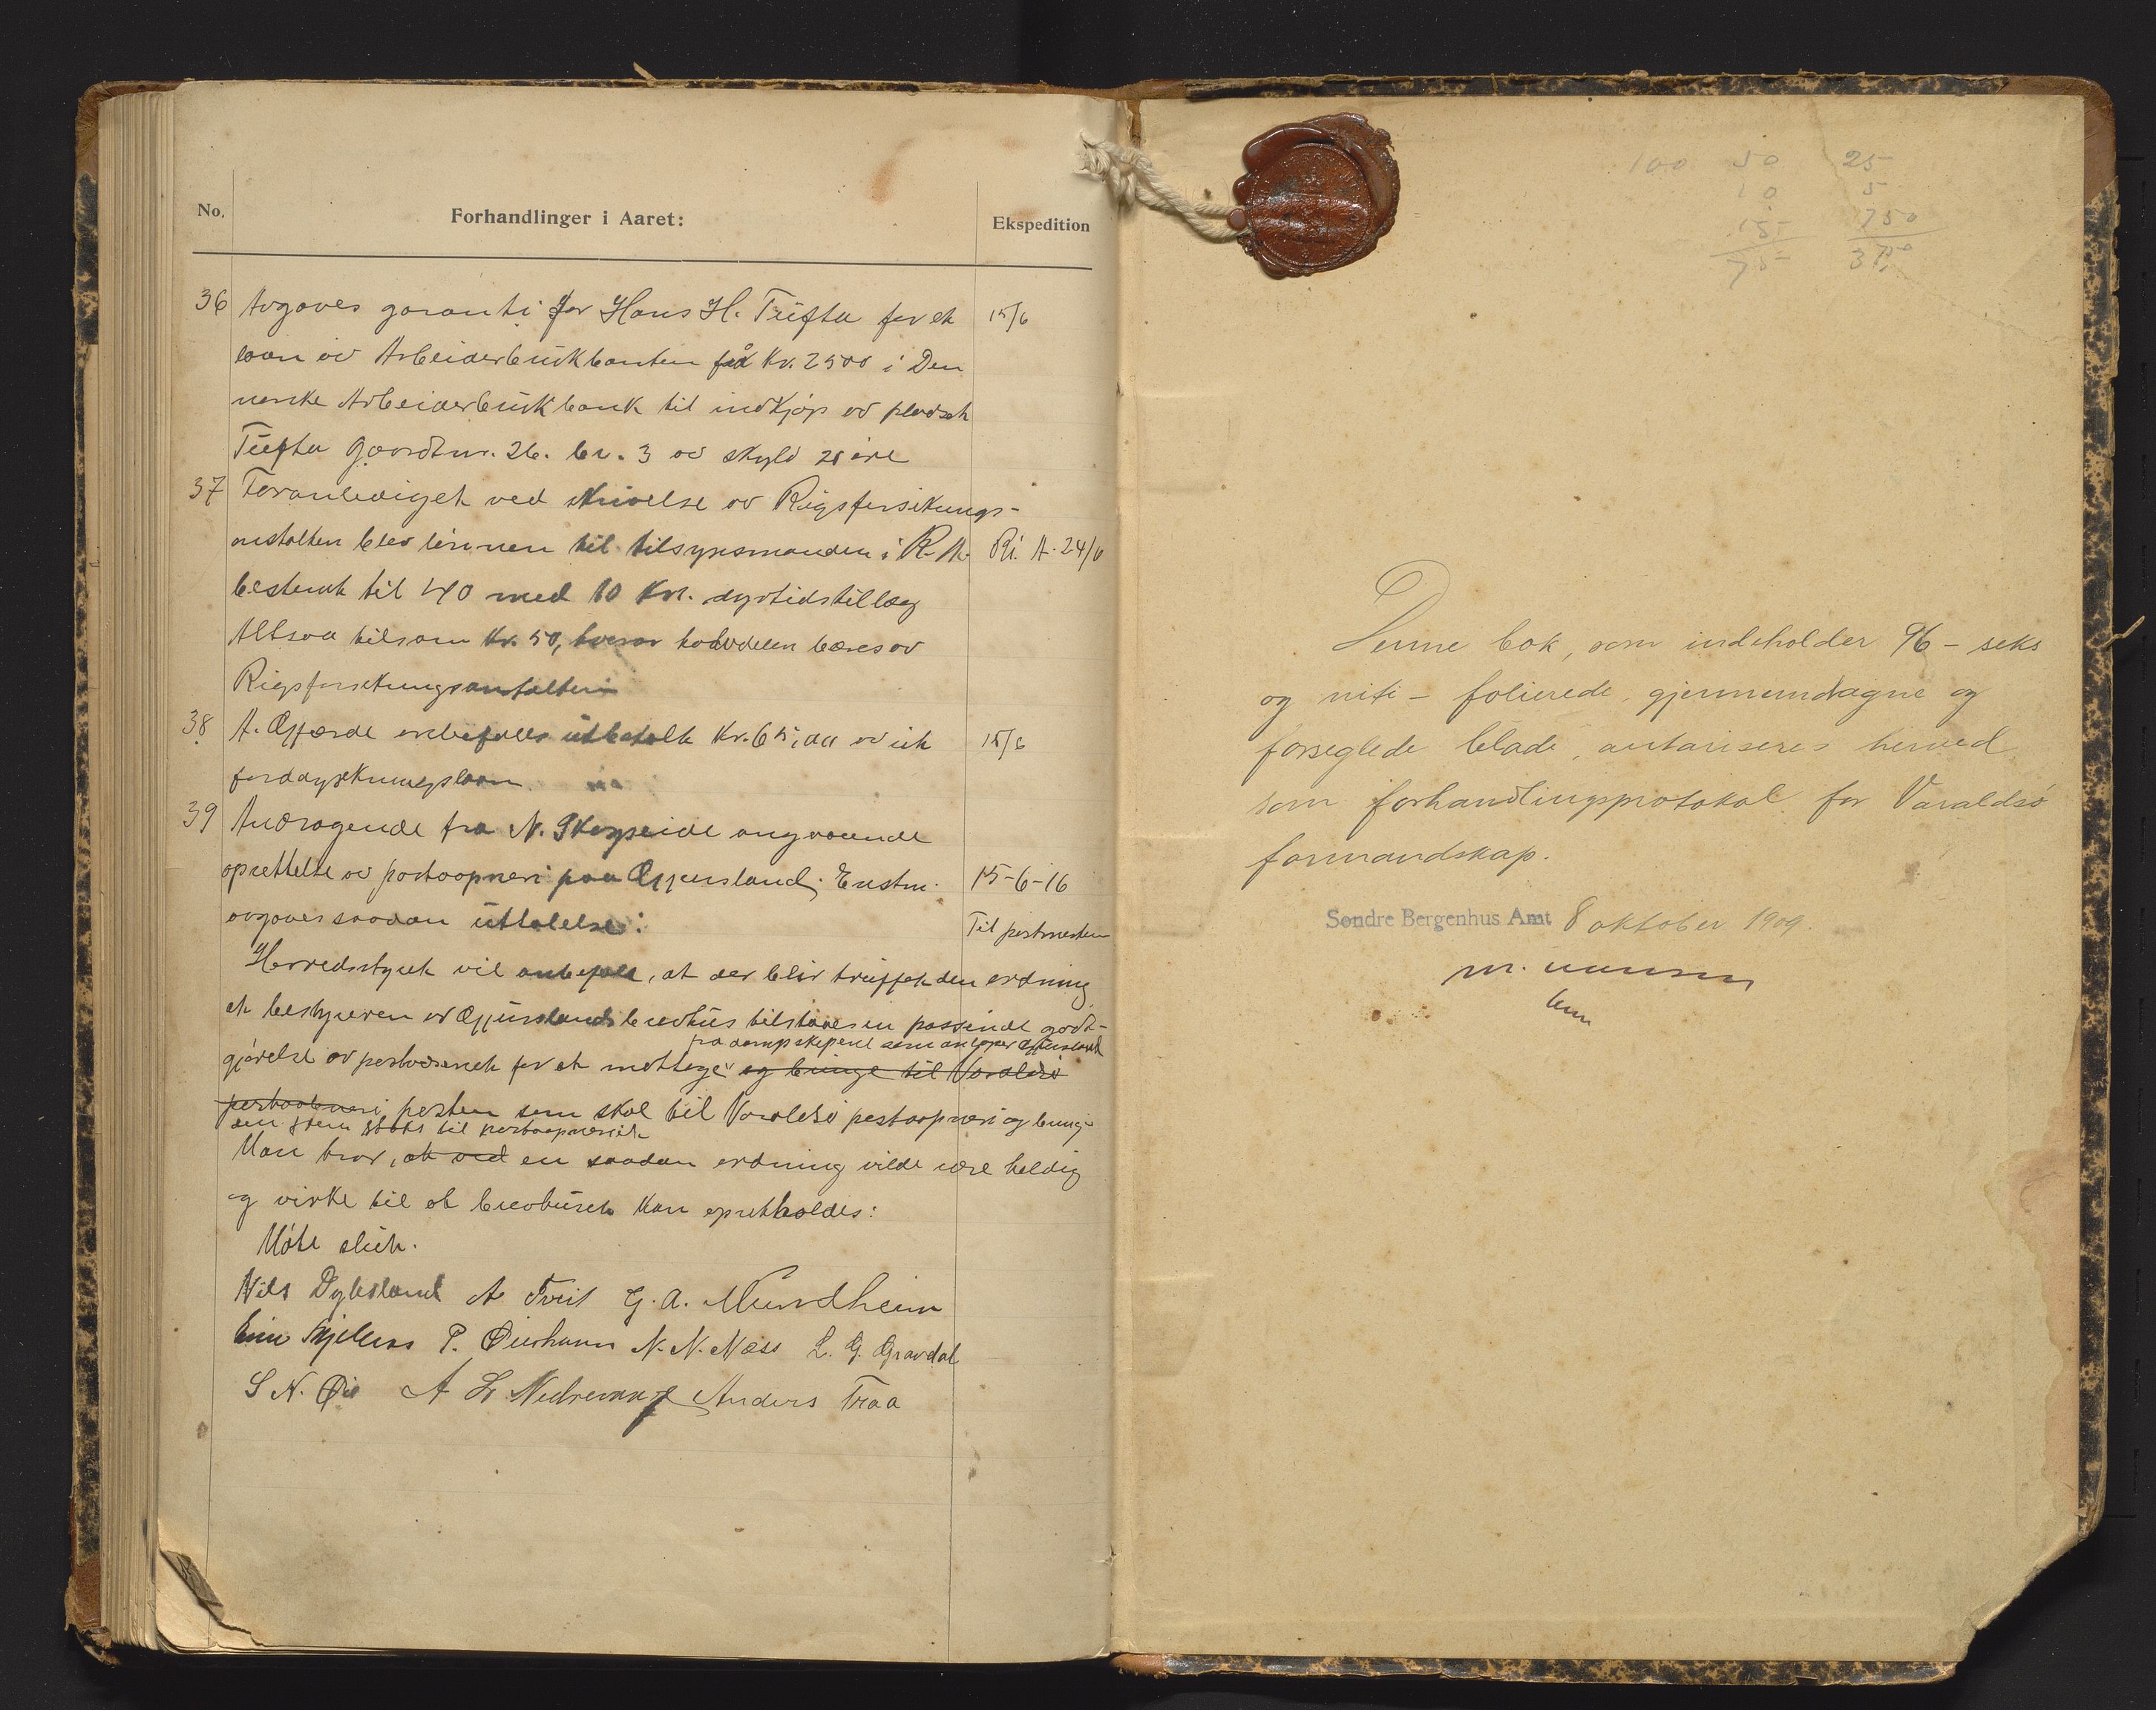 No.
Forhandlinger i Aaret:
Ekspedition
36 Avgaves garanti for Hans H. Tufta for et 15/6
laan av Arbeiderbrukbanken på Kr. 2500 i Den
norske Arbeiderbrukbank til indkjøp av pladset
Tufta Gaardsnr. 26. br. 3 av skyld 28 øre
37 Foranlediget ved skrivelse av Rigsforsikrings-
anstalten blev lønnen til tilsynsmanden i R. A. Ri. A. 24/6
bestemt til 40 med 10 Kr. dyrtidstillæg
Altsaa tilsam Kr. 50, hvorav halvdelen bæres av
Rigsforsikringsanstalten
38 A. Gjærde anbefales utbetalt Kr. 65,00 av 15/6
jorddyrkningslaan.
39 Andragende fra N. Skogseide angaaende
oprettelse av postaapneri paa Gjursland. Enstm. 15-6-16
avgaves saadan uttalelse: Til postmesteren
Herredstyret vil anbefale, at der blir truffet den ordning,
at bestyreren av Gjurslands brevhus tilstaaes en passende godt-
fra dampskipene som anløper Gjursland
gjørelse av postvæsenet for at mottage og bringe til Varaldsø
postaapneri, posten som skal til Varaldsø postaapneri og bringe
den frem straks til postaapneriet
Man tror, at ved en saadan ordning vilde være heldig
og virke til at brevhuset kan opretholdes:
Møte slut.
Nils Dybsland A Tveit G. A. Mundheim
P. N. N. Næss L. G. Gravdal
S N. Øie A L Nedrevaag Anders Traa
100 50 25
10 5
15 750
75 37,50
Denne bok, som indeholder 96 - seks
og niti - folierede, gjennemdragne og
forseglede blade, autoriseres herved
som forhandlingsprotokol for Varaldsø
formandskap.
Søndre Bergenhus Amt 8 oktober 1909.